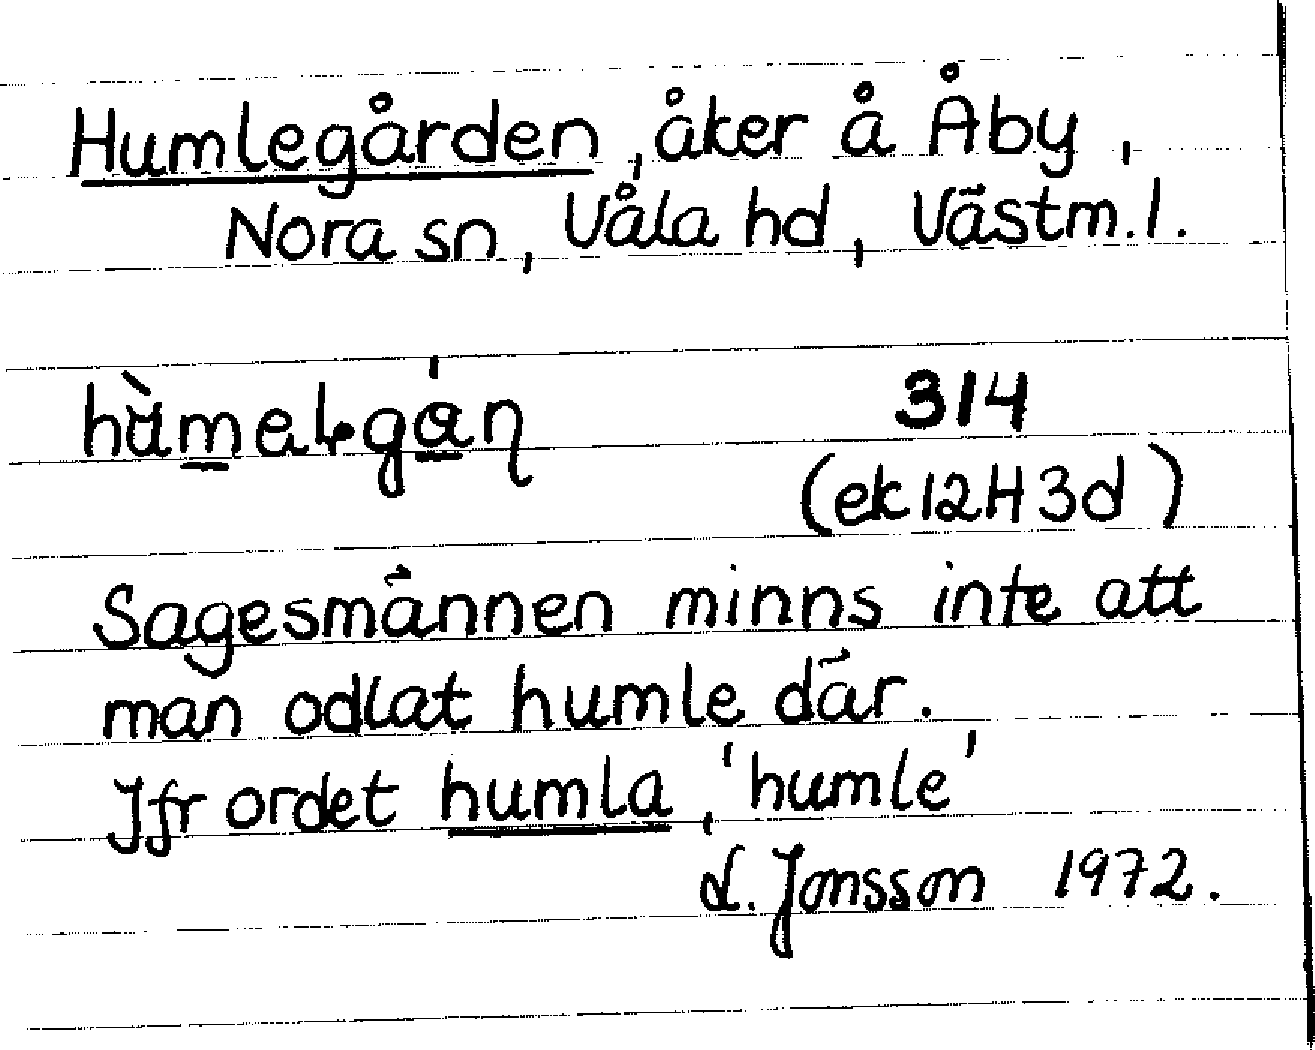 Humlegården, åker å Åby,
Nora sn, Våla hd, Västm.l.
hùmel·gǻɳ 314
(ek 12H3d)
Sagesmännen minns inte att
man odlat humle där.
Jfr ordet humla, 'humle'
L. Jonsson 1972.